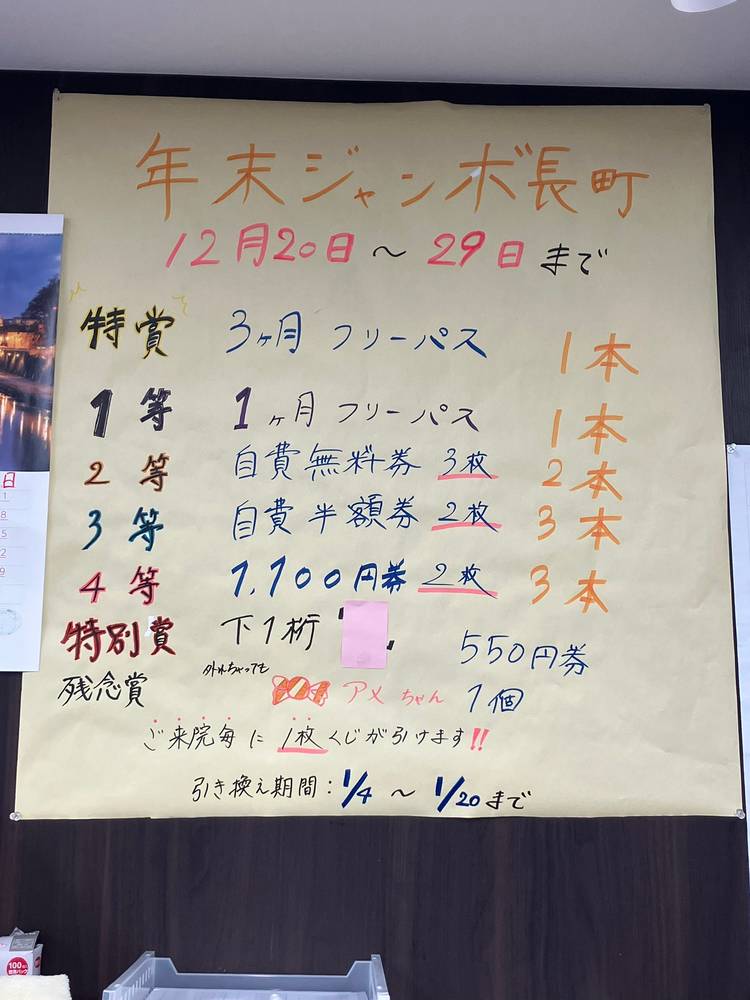 年末ジャンボ長町
12月20日〜29日まで
特賞 3ヶ月フリーパス 1本
1等 1ヶ月フリーパス 1本
2等 自費無料券 3枚 2本
3等 自費半額券 2枚 3本
4等 1,100円券 2枚 3本
特別賞 下1桁 550円券
残念賞 外れちゃっても アメちゃん 1個
ご来院毎に1枚くじが引けます!!
引き換え期間:1/4〜1/20まで
日
100